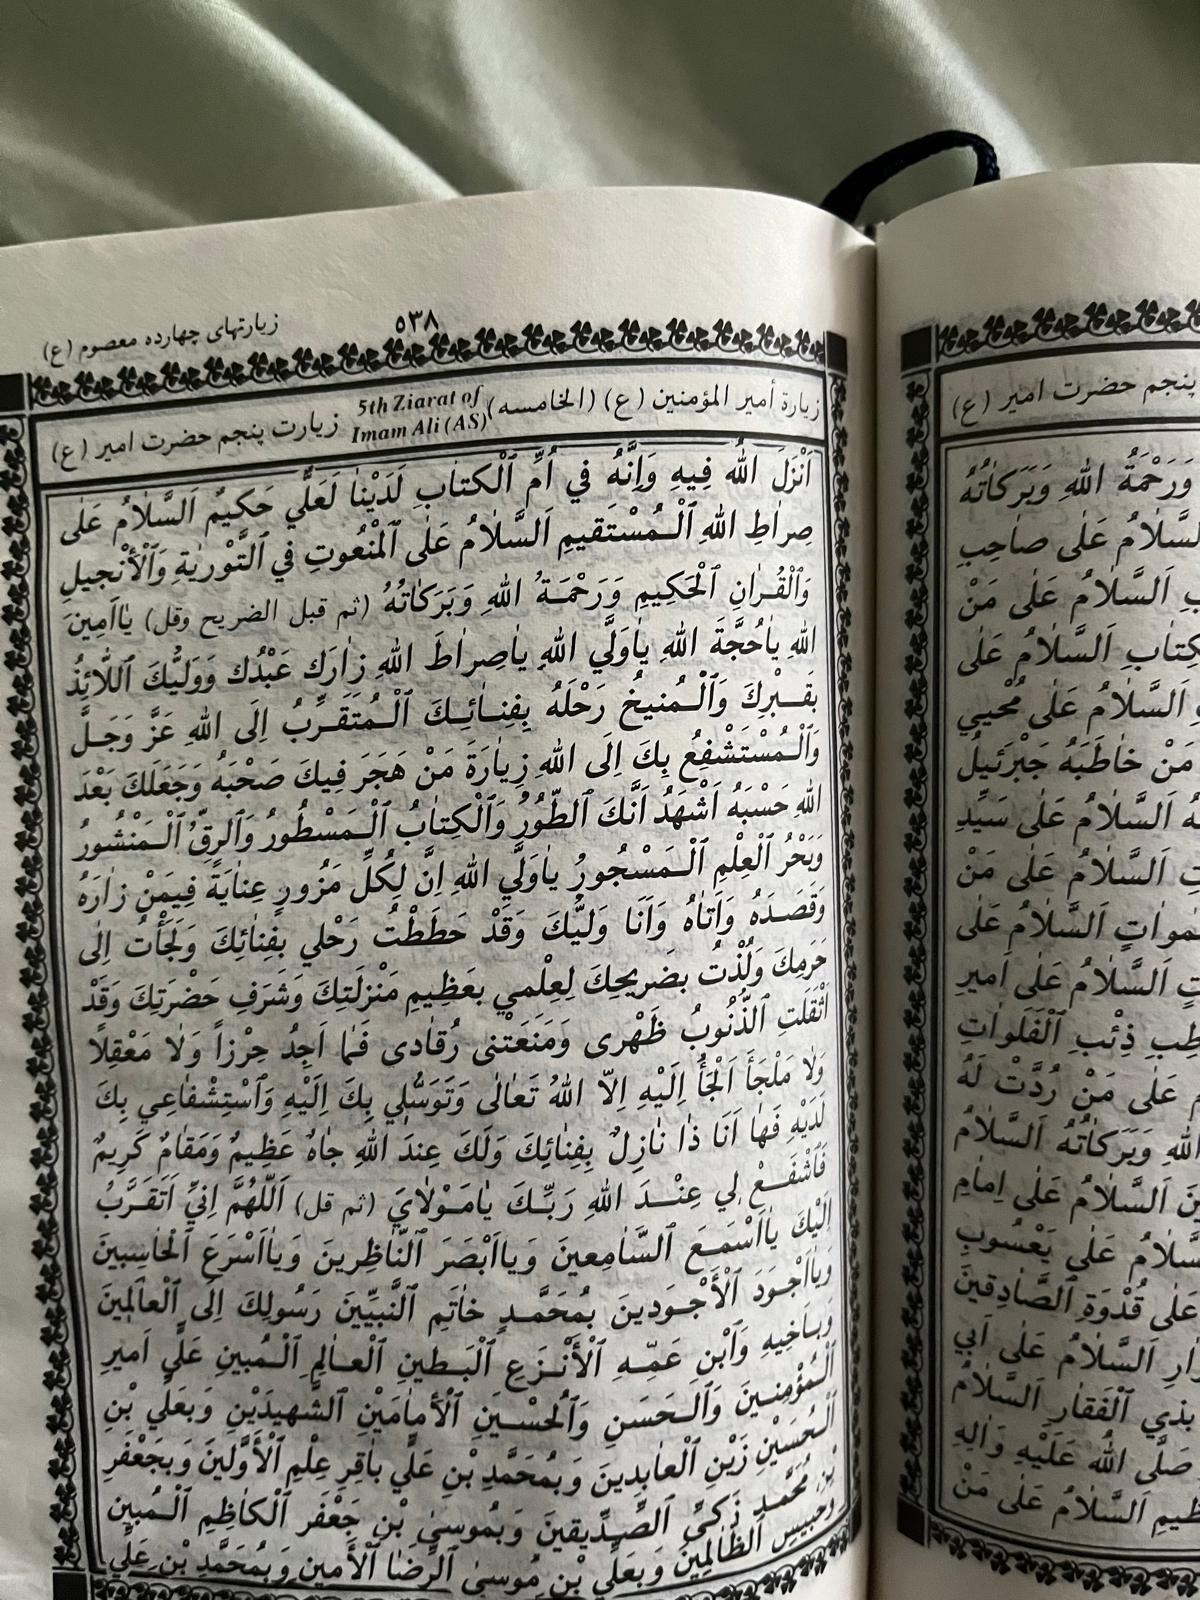 زيارتهاى چهارده معصوم (ع)
٥٣٨
زيارة أمير المؤمنين (ع) (الخامسه)
5th Ziarat of
Imam Ali (AS)
زيارت پنجم حضرت امير (ع)
اَنْزَلَ اللهُ فِيهِ وَاِنَّهُ في اُمِّ الْكتابِ لَدَيْنا لَعَلِيٌّ حَكيمٌ اَلسَّلامُ عَلى
صِراطِ اللهِ الْمُسْتَقيمِ اَلسَّلامُ عَلَى الْمَنْعُوتِ في التَّوْريةِ وَالْأنْجيلِ
وَالْقُرانِ الْحَكِيمِ وَرَحْمَةُ اللهِ وَبَرَكاتُهُ (ثم قبل الضريح وقل) يااَمِينَ
اللهِ ياحُجَّةَ اللهِ ياوَلَّيِ اللهِ ياصِراطَ اللهِ زارَك عَبْدُك وَوَلِيُّكَ اَللّائِذُ
بقَبْرِكَ وَالْمُنيخُ رَحْلَهُ بِفِنائِكَ الْمُتَقَرِّبُ اِلَى اللهِ عَزَّ وَجَلَّ
وَالْمُسْتَشْفِعُ بِكَ اِلَى اللهِ زِيارَةَ مَنْ هَجَرَ فِيكَ صَحْبَهُ وَجَعَلَكَ بَعْدَ
اللهِ حَسْبَهُ اَشْهَدُ اَنَّكَ الطّوُرُ وَالْكِتابُ الْمَسْطُورُ وَالرقُّ الْمَنْشُورُ
وَبَحْرُ الْعِلْمِ الْمَسْجُورُ ياوَلَّيِ اللهِ اِنَّ لِكُلِّ مَزُورٍ عِنايَةً فِيمَنْ زارَهُ
وَقَصَدَهُ وَاَتاهُ وَاَنَا وَلِيُّكَ وَقَدْ حَطَطْتُ رَحْلي بفِنائِكَ وَلَجَأْتُ اِلى
حَرَمِكَ وَلُذْتُ بضَريحِكَ لِعِلْمي بعَظِيمِ مَنْزِلَتِكَ وَشَرَفِ حَضْرَتِكَ وَقَدْ
اَثْقَلَتِ الذُّنُوبُ ظَهْرى وَمَنَعَتْنى رُقادى فَما اَجِدُ حِرْزاً وَلا مَعْقِلاً
وَلا مَلْجَأً اَلْجَأُ اِلَيْهِ اِلاّ اللهُ تَعالى وَتَوَسُّلي بِكَ اِلَيْهِ وَاسْتِشْفاعِي بِكَ
لَدَيْهِ فَها اَنَا ذا نازِلٌ بِفِنائِكَ وَلَكَ عِندَ اللهِ جاهٌ عَظِيمٌ وَمَقامٌ كَرِيمٌ
فَاشْفَعْ لي عِنْدَ اللهِ رَبِّكَ يامَوْلايَ (ثم قل) اَللّهُمَّ اِنّيِ اَتَقَرَّبُ
اِلَيْكَ يااَسْمَعَ السّامِعينَ وَيااَبْصَرَ النّاظِرينَ وَيااَسْرَعَ الْحاسِبينَ
وَيااَجْوَدَ الْأجْوَدينَ بمُحَمَّدٍ خاتَمِ النَّبيّينَ رَسُولِكَ اِلَى الْعالَمِينَ
وَباَخيهِ وَابْنِ عَمِّهِ الْأَنْزَعِ الْبَطينِ الْعالِمِ الْمُبينِ عَليٍّ اَميرِ
الْمُؤْمِنينَ وَالْحَسَنِ وَالْحُسْينِ الْأمامَيْنِ الشَّهيدَيْنِ وَبعَليِّ بْنِ
الْحُسَيْنِ زَيْنِ الْعابِدينَ وَبمُحَمَّدِ بْنِ عَلّيٍ باقِرِ عِلْمِ الْأَوَّلينَ وَبجَعْفَرِ
بْنِ مُحَمَّدٍ زَكىِّ الصِّدّيقينَ وَبمُوسىَ بْنِ جَعْفَرِ الْكاظِمِ الْمُبينِ
وَحَبيسِ الظّالِمِينَ وَبعَليّ بْنِ مُوسىَ الرِّضا الْأَمينِ وَبمُحَمَّدِ بْنِ عَلِي
پنجم حضرت امير (ع)
وَرَحْمَةُ اللهِ وَبَرَكاتُهُ
لسَّلامُ عَلى صاحِبِ
اَلسَّلامُ عَلى مَنْ
كِتابِ اَلسَّلامُ عَلى
اَلسَّلامُ عَلى مُحْييِ
مَنْ خاطَبَهُ جَبْرَئيلُ
اَلسَّلامُ عَلى سَيِّدِ
اَلسَّلامُ عَلى مَنْ
اَلسَّلامُ عَلى
اَلسَّلامُ عَلى اَميرِ
ذِئْبِ الْفَلَواتِ
عَلى مَنْ رُدَّتْ لَهُ
اللهِ وَبَرَكاتُهُ اَلسَّلامُ
اَلسَّلامُ عَلى اِمامِ
عَلى يَعْسُوبِ
عَلى قُدْوَةِ الصّادِقينَ
اَلسَّلامُ عَلى اَبي
بذي الْفَقارِ اَلسَّلامُ
صَلَّى اللهُ عَلَيْهِ وَالِهِ
اَلسَّلامُ عَلى مَنْ